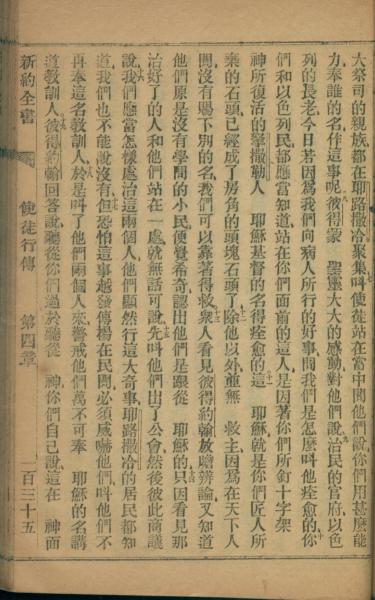 大祭司的親族都在耶路撒冷聚集叫使徒站在當中問他們說你們用甚麼能
力奉誰的名作這事呢彼得蒙　聖靈大大的感動對他們說治民的官府以色
列的長老今日若因爲我們向病人所行的好事問我們是怎麼叫他痊愈的你
們和以色列民都應當知道站在你們面前的這人是因著你們所釘十字架
神所復活的拏撒勒人　耶穌基督的名得痊愈的這　耶穌就是你們匠人所
棄的石頭已經成了房角的頭塊石頭了除他以外並無　救主因爲在天下人
間沒有賜下別的名我們可以靠著得救衆人看見彼得約翰放膽辨論又知道
他們原是沒有學問的小民便覺希奇認出他們是跟從　耶穌的只因看見那
治好了的人和他們站在一處就無話可說先叫他們出了公會然後彼此商議
說我們應當怎樣處治這兩個人他們顯然行這大奇事耶路撒冷的居民都知
道我們也不能說沒有但恐怕這事越發傳揚在民間必須威嚇他們叫他們不
再奉這名教訓人於是叫了他們兩個人來警戒他們萬不可奉　耶穌的名講
道教訓人彼得約翰回答說聽從你們過於聽從　神你們自己說這在　神面
新約全書　使徒行傳　第四章　一百三十五